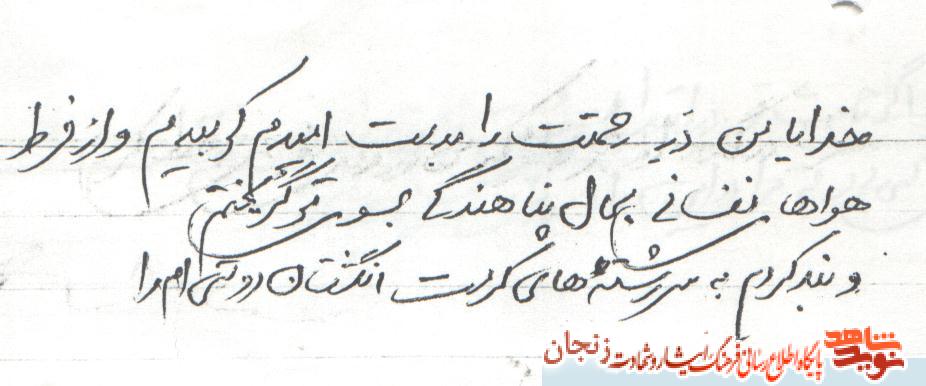 خدایا من دَرِ رحمتت را بدست امیدم کوبیدم و از فرط
هواهای نفسانی بحال پناهندگی بسوی تو گریختم
و بند کردم به سررشته‌های کرمت انگشتان دوستی‌ام را
نوید شاهد
پایگاه اطلاع رسانی فرهنگ ایثار و شهادت زنجان